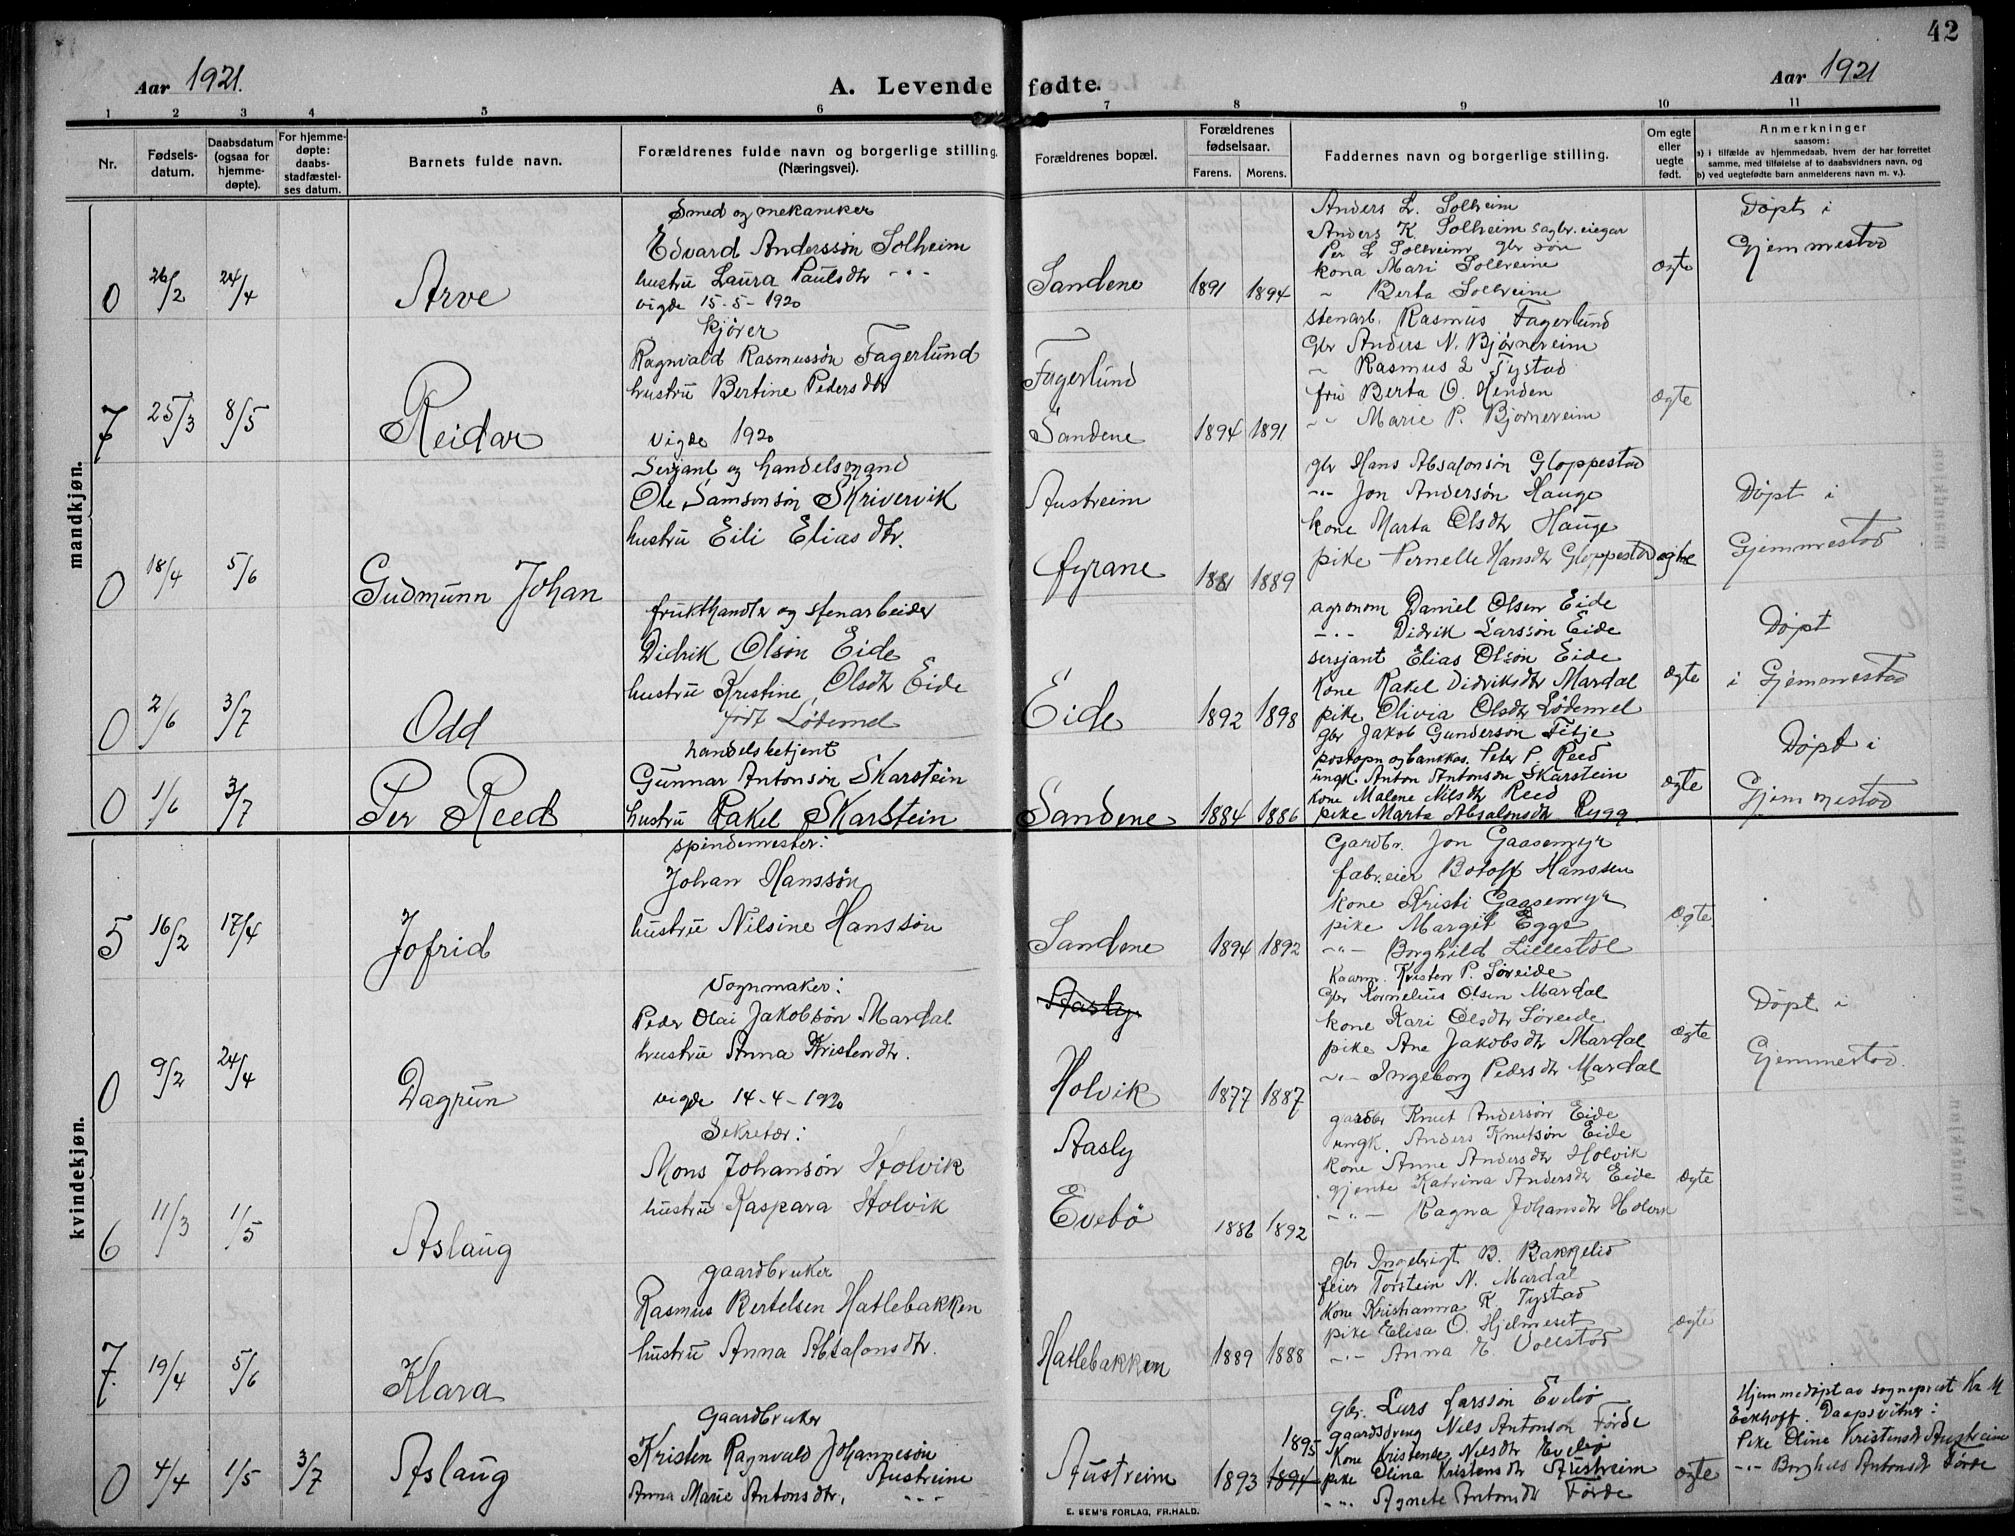 42
Aar 1921.
A. Levende fødte.
Aar 1921
1 2 3 4 5 6 7 8 9 10 11
Nr.
Fødsels-
datum.
Daabsdatum
(ogsaa for
hjemme-
døpte).
For hjemme-
døpte:
daabs-
stadfæstel-
ses datum.
Barnets fulde navn.
Forældrenes fulde navn og borgerlige stilling
(Næringsvei).
Forældrenes bopæl.
Forældrenes
fødselsaar.
Farens. Morens.
Faddernes navn og borgerlige stilling.
Om egte
eller
uegte
født.
Anmerkninger
saasom:
a) i tilfælde av hjemmedaab, hvem der har forrettet
samme, med tilføielse af to daabsvidners navn, og
b) ved uegtefødte barn anmelderens navn m. v.).
mandkjøn.
0 26/2 24/4 Arve
Smed og mekaniker
Edvard Anderssøn Solheim
hustru Laura Paulsdtr -"-
vigde 15-5-1920
Sandene 1891 1894
Anders L. Solheim
Anders K Solheim sagbr. eigar
Per L Solheim gbr søn
kona Mari Solheim
" Berta Solheim
ægte
Døpt i
Gjemmestad
7 25/3 8/5 Reidar
kjører
Ragnvald Rasmussøn Fagerlund
hustru Bertine Pedersdtr
vigde 1920
Fagerlund
Sandene 1894 1891
stenarb. Rasmus Fagerlund
Gbr Anders N. Bjørnereim
" Rasmus L Tystad
fru Berta O. Henden
" Marie P. Bjørnereim
ægte
0 18/4 5/6 Gudmunn Johan
Sersjant og handelsmand
Ole Samsonsøn Skrivervik
hustru Eili Eliasdtr.
Austreim
fyrane 1881 1889
gbr Hans Absalonsøn Gloppestad
-"- Jon Andersøn Hauge
kone Marta Olsdtr Hauge
pike Pernelle Hansdtr Gloppestad
ægte
Døpt i
Gjemmestad
0 2/6 3/7 Odd
frukthandler og stenarbeider
Didrik Olsøn Eide
hustru Kristine Olsdtr Eide
født Lødemel
Eide 1892 1898
agronom Daniel Olsen Eide
-"- Didrik Larssøn Eide
sersjant Elias Olsøn Eide
Kone Rakel Didriksdtr Mardal
pike Olivia Olsdtr Lødemel
ægte
Døpt
i Gjemmestad
0 1/6 3/7 Per Reed
handelsbetjent
Gunnar Antonsøn Skarstein
hustru Rakel Skarstein
Sandene 1884 1886
gbr Jakob Gunderson Fitje
postopn og bankkas. Peter P. Reed
ungk. Anton Antonsøn Skarstein
Kone Malene Nilsdtr Reed
pike Marta Absalonsdtr Rygg
ægte
Døpt i
Gjemmestad
kvindekjøn.
5 16/2 17/4 Jofrid
spindemester:
Johan Hanssøn
hustru Nilsine Hanssøn
Sandene 1894 1892
Gardbr. Jon Gaasemyr
fabr.eier Botolf Hanssen
kone Kristi Gaasemyr
pike Margit Egge
-"- Borghild Lillestøl
ægte
0 9/2 24/4 Dagrun
Vognmaker:
Peder Olai Jakobsøn Mardal
hustru Anna Kristendtr.
vigde 14-4-1920
Aasly
Holvik 1877 1887
Kaarm. Kristen P. Søreide
Gbr Kornelius Olsen Mardal
kone Kari Olsdtr Søreide
pike Ane Jakobsdtr Mardal
-"- Ingeborg Pedersdtr Mardal
ægte
Døpt i
Gjemmestad.
6 11/3 1/5 Aslaug
Sekretær:
Mons Johansøn Holvik
hustru Kaspara Holvik
Aasly
Evebø 1886 1892
gardbr Knut Andersøn Eide
ungk. Anders Knutsøn Eide
kone Anne Andersdtr Holvik
gjente Katrina Andersdtr Eide
-"- Ragna Johansdtr Holvik
ægte
7. 19/4 5/6 Klara
gaardbruker
Rasmus Bertelsen Hatlebakken
hustru Anna Absalonsdtr.
Hatlebakken 1889 1888
gbr Ingebrigt B. Bakkelid
feier Torstein N. Mardal
Kone Kristianna R Tystad
pike Elisa O. Hjelmeset
-"- Anna E. Vollstad
ægte
0 4/4 1/5 3/7 Aslaug
Gaardbruker
Kristen Ragnvald Johannesøn
Austreim
Anna Marie Antonsdtr. -"-
Austreim 1893 1894 1895
gbr. Lars Larssøn Evebø
gaardsdreng Nils Antonsøn Førde
Kone Kristende Nilsdtr Evebø
pike Olina Kristensdtr Austreim
-"- Agnete Antonsdtr Førde
ægte
Hjemmedøpt av sogneprest Kr M
Eckhoff. Daapsvitner:
Pike Oline Kristensdtr Austreim
-"- Borghild Antonsdtr Førde
E. SEM'S FORLAG, FR.HALD.